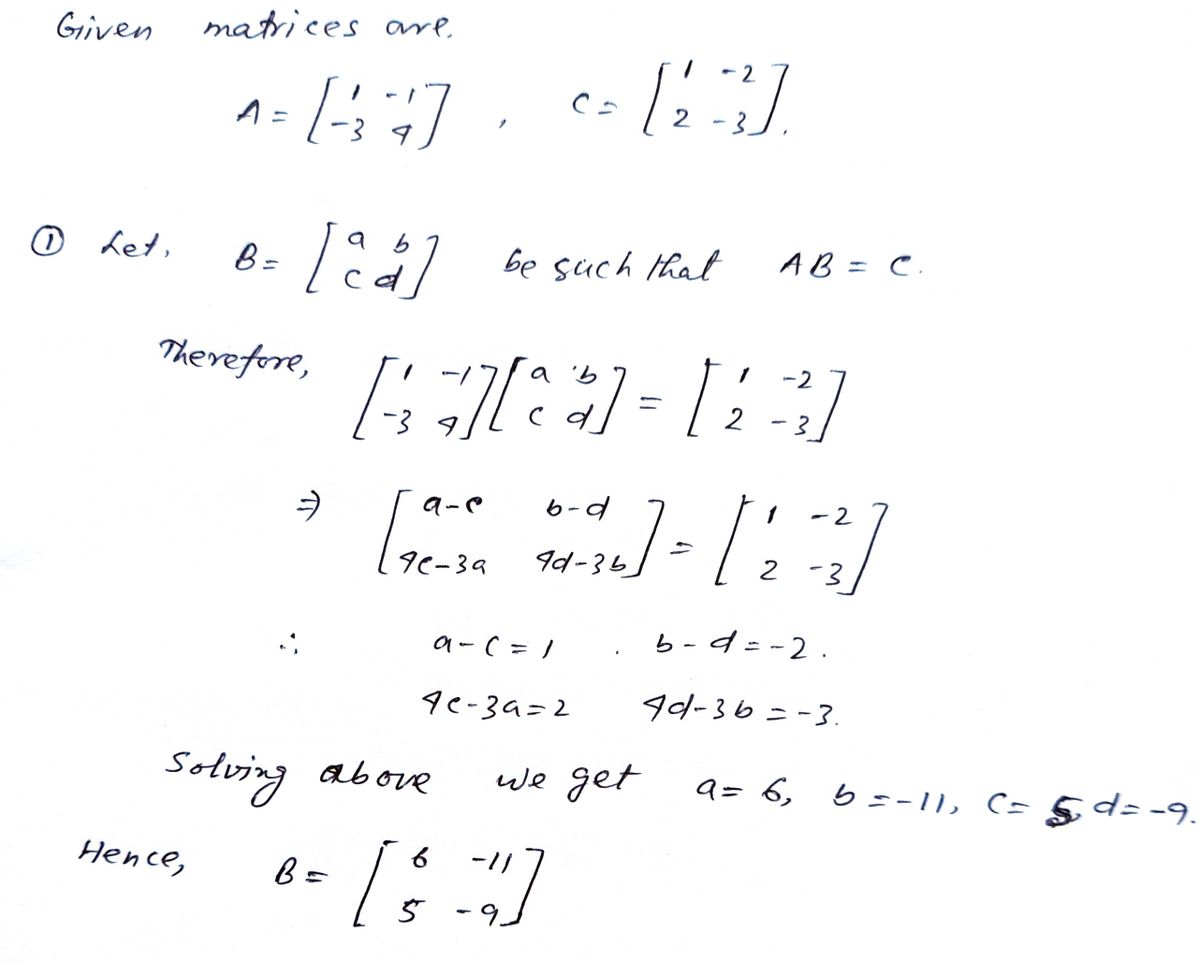 Given matrices are.
A = [1 -1; -3 4] , C = [1 -2; 2 -3].
① Let, B = [a b; c d] be such that AB = C.
Therefore, [1 -1; -3 4][a b; c d] = [1 -2; 2 -3]
⇒ [a-c b-d; 4c-3a 4d-3b] = [1 -2; 2 -3]
∴ a-c=1 . b-d=-2.
4c-3a=2 4d-3b=-3.
Solving above we get a=6, b=-11, c=5, d=-9.
Hence, B = [6 -11; 5 -9]